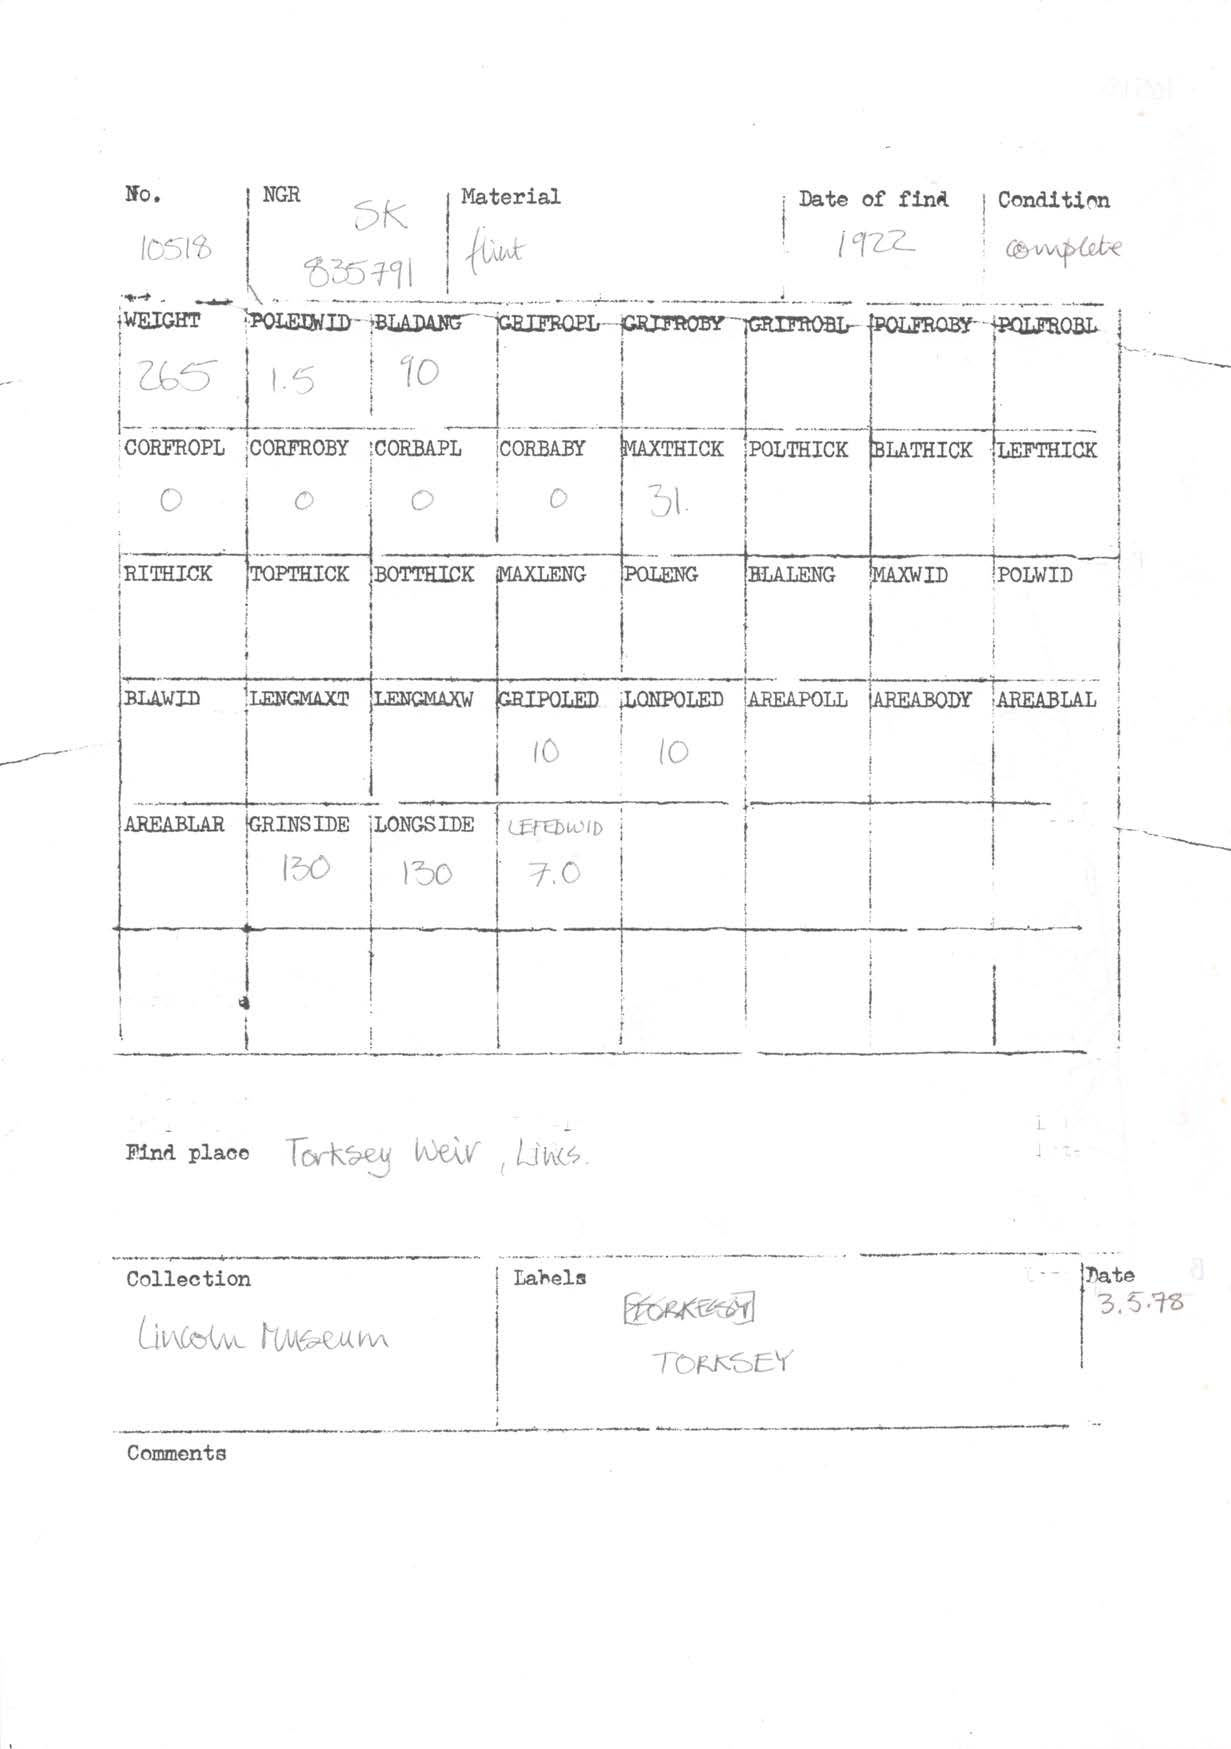 No. NGR Material Date of find Condition
SK
10518 835791 flint 1922 complete
WEIGHT POLEDWID BLADANG GRIFROPL GRIFROBY GRIFROBL POLFROBY POLFROBL
265 1.5 90
CORFROPL CORFROBY CORBAPL CORBABY MAXTHICK POLTHICK BLATHICK LEFTHICK
0 0 0 0 31.
RITHICK TOPTHICK BOTTHICK MAXLENG POLENG BLALENG MAXWID POLWID
BLAWID LENGMAXT LENGMAXW GRIPOLED LONPOLED AREAPOLL AREABODY AREABLAL
10 10
AREABLAR GRINSIDE LONGSIDE LEFEDWID
130 130 7.0
Find place Torksey Weir, Lincs.
Collection Labels Date
3.5.78
Lincoln Museum
TORKSEY
Comments